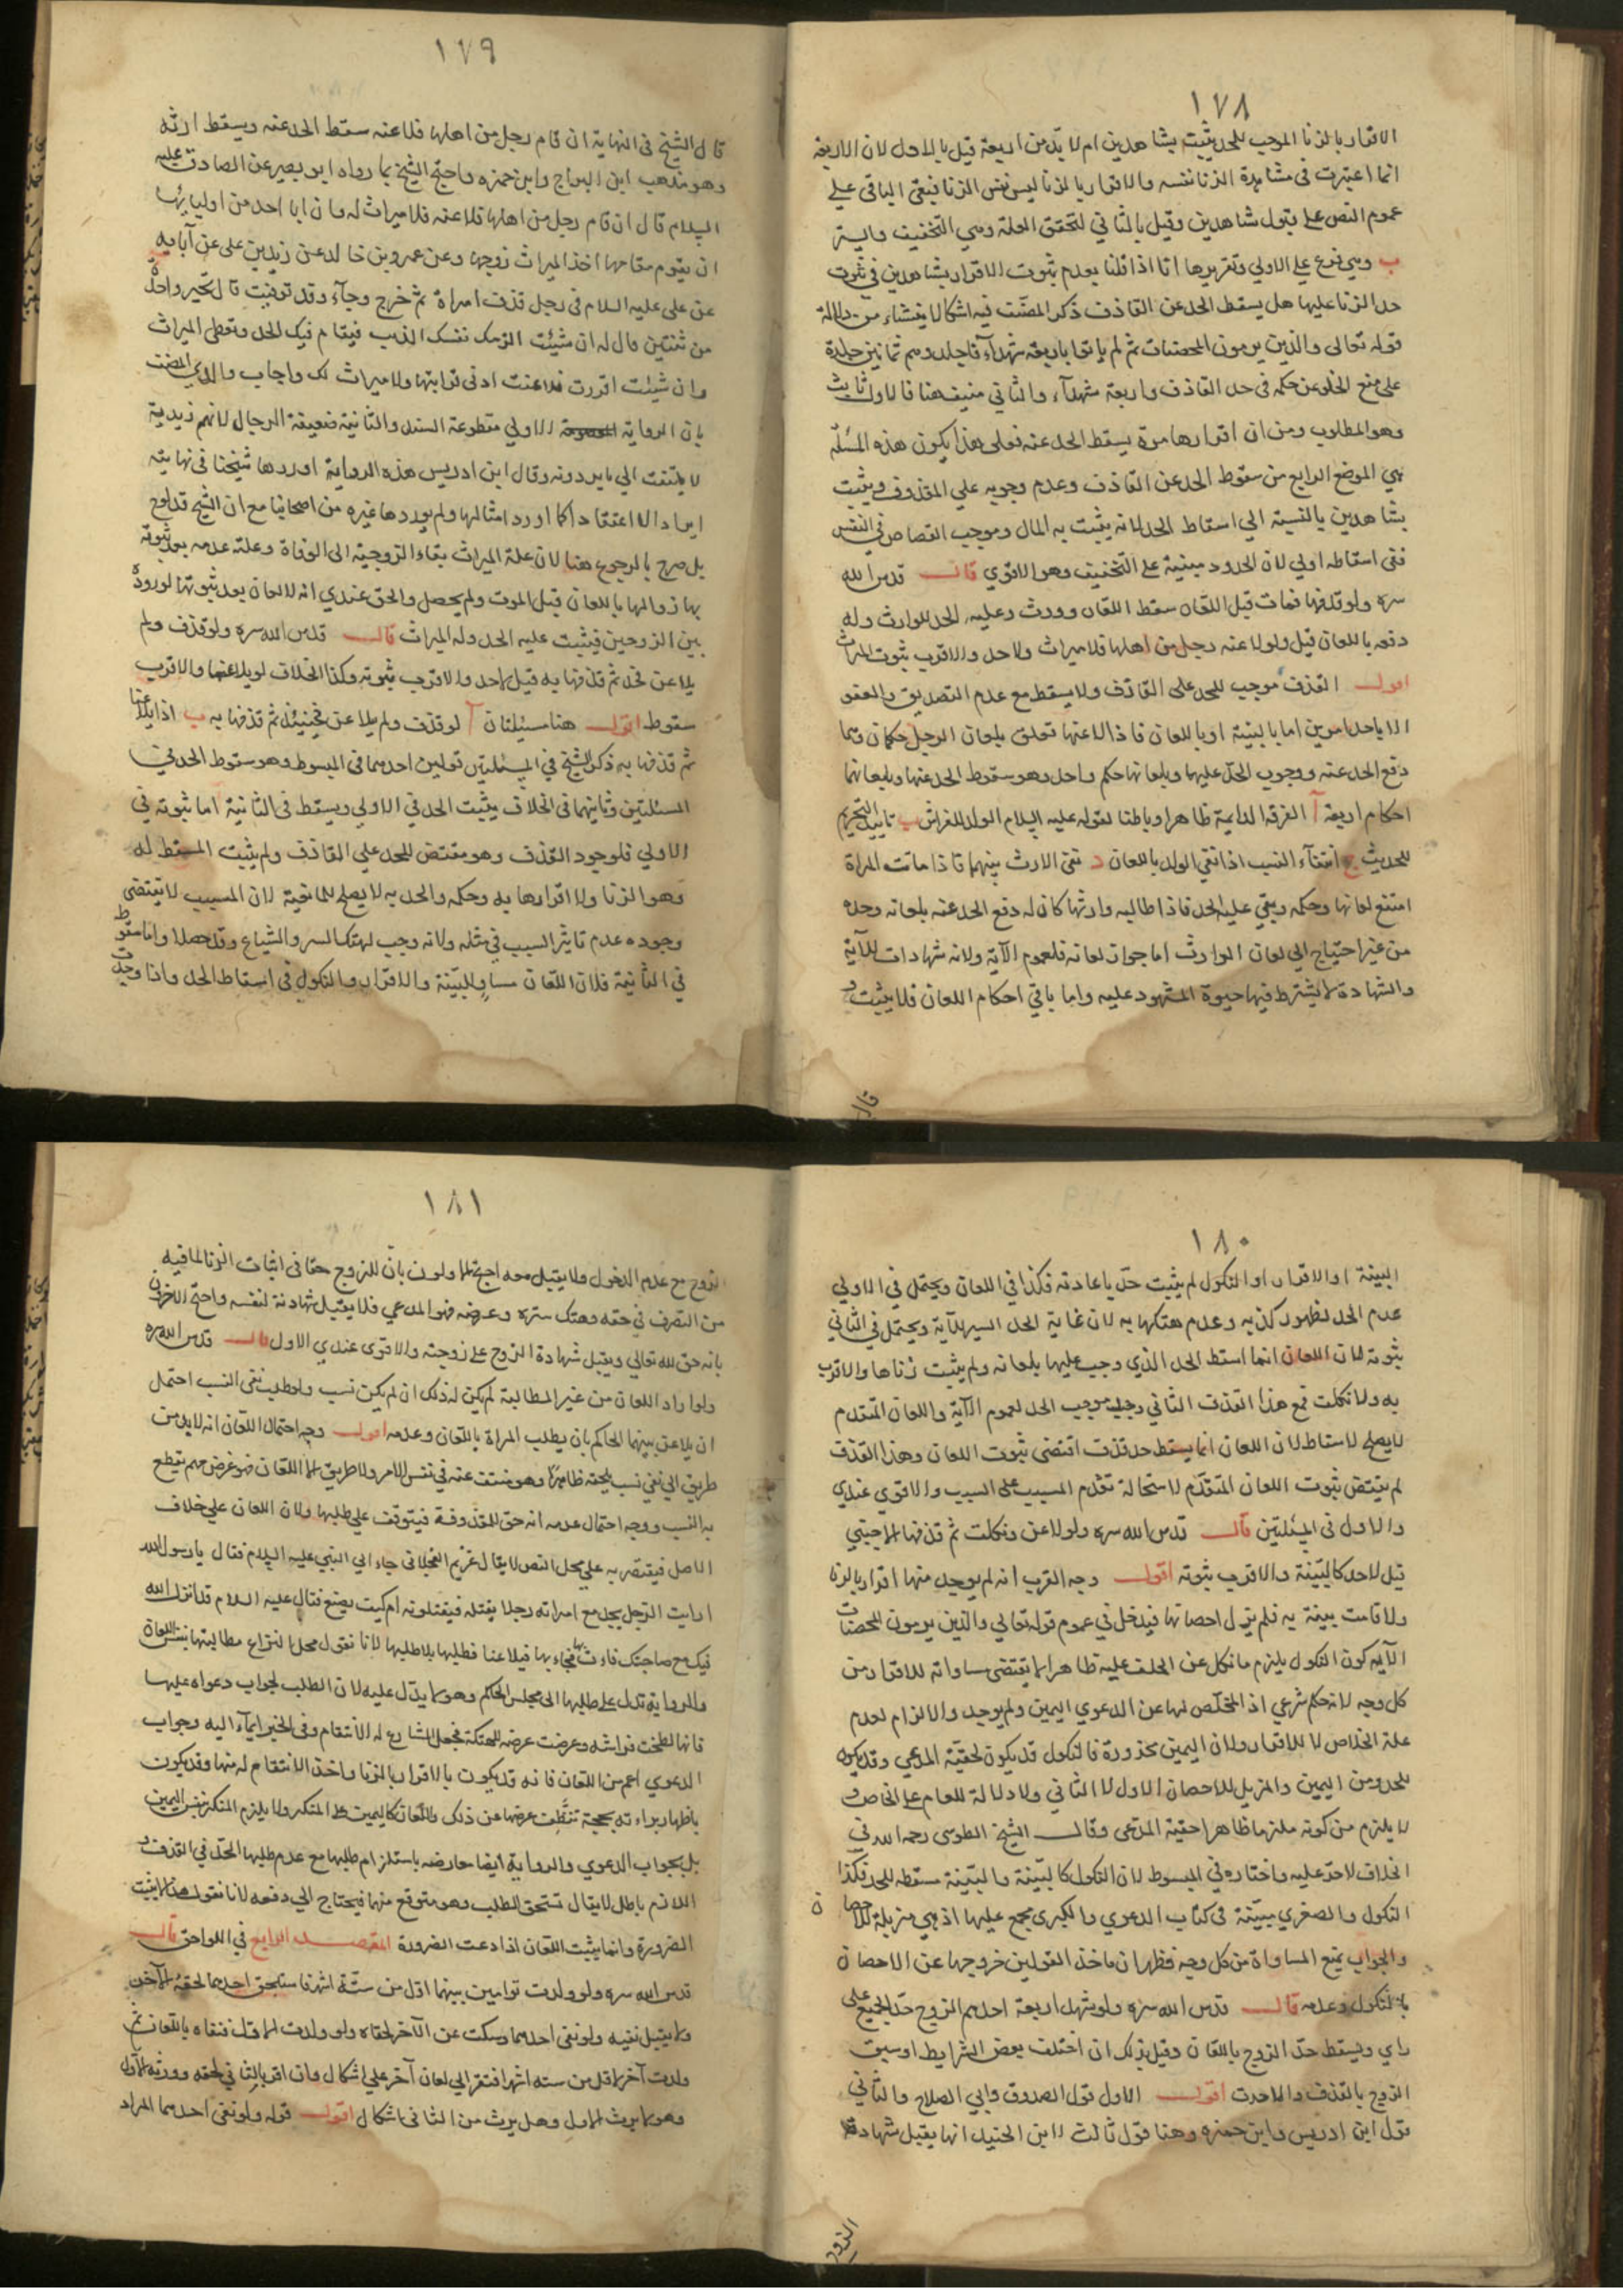 ١٧٨
الاقرار بالزنا الموجب للحد يثبت بشاهدين ام لا بد من اربعة قيل بالاول لان الاربعة
انما اعتبرت فى مشاهدة الزنا نفسه والاقرار بالزنا ليس نفس الزنا فبقى الباقى على
عموم النص على قبول شاهدين وقيل بالثاني لتحقق العلة وهي التخفيف والستر
ب وهي فرع على الاولي وتقريرها انا اذا قلنا بعدم ثبوت الاقرار بشاهدين في ثبوت
حد الزنا عليها هل يسقط الحد عن القاذف ذكر المصنف فيه اشكالا ينشاء من دلالة
قوله تعالى والذين يرمون المحصنات ثم لم ياتوا باربعة شهدآء فاجلدوهم ثمانين جلدة
على منع الخلو عن حكمه فى حد القاذف واربعة شهدآء والثاني منيف هنا فالاول ثابت
وهو المطلوب ومن ان اقرارها مرة يسقط الحد عنه فعلى هذا يكون هذه المسئلة
هي الموضع الرابع من سقوط الحد عن القاذف وعدم وجوبه علي المقذوف ويثبت
بشاهدين بالنسبة الي اسقاط الحد لانه يثبت به المال وموجب القصاص في النفس
ففى اسقاطه اولي لان الحدود مبنية على التخفيف وهو الاقوي قال قدس الله
سره ولو قذفها فماتت قبل اللعان سقط اللعان وورث وعليه الحد للوارث وله
دفعه باللعان قيل ولو لاعنه رجل من اهلها فلا ميراث ولا حد والاقرب ثبوت الميراث
اقول القذف موجب للحد على القاذف ولا يسقط مع عدم التصديق والعفو
الا باحد امرين اما بالبينة او باللعان فاذا لاعنها تعلق بلعان الرجل حكمان وهما
دفع الحد عنه ووجوب الحد عليها وبلعانها حكم واحد وهو سقوط الحد عنها وبلعانهما
احكام اربعة آ الفرقة الدايمة ظاهرا وباطنا لقوله عليه السلام الولد للفراش ب تاييد التحريم
للحديث ج انتفآء النسب اذا نفي الولد باللعان د نفى الارث بينهما فاذا ماتت المراة
امتنع لعانها وحكمه وبقي عليه الحد فاذا طالبه وارثها كان له دفع الحد عنه بلعانه وحده
من غير احتياج الي لعان الوارث اما جواز لعانه فلعموم الآية ولانه شهادات للآية
والشهادة لا يشترط فيها حيوة المشهود عليه واما باقي احكام اللعان فلا يثبت و
قال
١٧٩
قال الشيخ فى النهاية ان قام رجل من اهلها فلاعنه سقط الحد عنه ويسقط ارثه
وهو مذهب ابن البراج وابن حمزه واحتج الشيخ بما رواه ابو بصير عن الصادق عليه
السلام قال ان قام رجل من اهلها فلاعنه فلا ميراث له وان ابا احد من اوليائها
ان يقوم مقامها اخذ الميراث زوجها وعن عمرو بن خالد عن زيد بن على عن آبائه
عن على عليه السلام فى رجل قذف امراة ثم خرج وجآء وقد توفيت قال يخير واحدة
من ثنتين قال له ان شيئت الزمت نفسك الذنب فيقام فيك الحد وتعطى الميراث
وان شيئت اقررت فلاعنت ادنى قرابتها ولا ميراث لك واجاب والدي المصنف
بان الرواية الاولي مقطوعة السند والثانية ضعيفة الرجال لانهم زيدية
لا يلتفت الي ما يرددونه وقال ابن ادريس هذه الرواية اوردها شيخنا فى نهايته
ايرادا لا اعتقادا كما اورد امثالها ولم يوردها غيره من اصحابنا مع ان الشيخ قد لوح
بل صرح بالرجوع هنا لان علة الميراث بقاء الزوجية الى الوفاة وعلة عدمه بعد ثبوته
بها زوالها باللعان قبل الموت ولم يحصل والحق عندي انه لا لعان بعد ثبوتها لوروده
بين الزوجين فيثبت عليه الحد وله الميراث قال قدس الله سره ولو قذف ولم
يلاعن فحد ثم قذفها به قيل لاحد والاقرب ثبوته وكذا الخلاف لو تلاعنها والاقرب
سقوط اقول هنا مسئلتان آ لو قذف ولم يلاعن فحينئذ ثم قذفها به ب اذا تلاعنا
ثم قذفها به ذكر الشيخ في المسئلتين قولين احدهما فى المبسوط وهو سقوط الحد في
المسئلتين وثانيهما فى الخلاف يثبت الحد في الاولي ويسقط فى الثانية اما ثبوته في
الاولي فلوجود القذف وهو مقتض للحد علي القاذف ولم يثبت المسقط له
وهو الزنا ولا اقرارها به وحكمه والحد به لا يصلح للمانعية لان المسبب لا يقتضى
وجوده عدم تاثير السبب في مثله ولانه وجب لهتك الستر والشياع وقد حصلا واما سقوط
في الثانية فلان اللعان مساو للبينة والاقرار والنكول فى اسقاط الحد واذا وجدت
١٨٠
البينة او الاقرار او النكول لم يثبت حد باعادته فكذا في اللعان ويحتمل في الاولي
عدم الحد لظهور كذبه وعدم هتكها به لان غاية الحد الستر للآية ويحتمل في الثاني
ثبوته لان اللعان انما اسقط الحد الذي وجب عليها بلعانه ولم يثبت زناها والاقرب
به ولا نكلت فمع هذا القذف الثاني وجد موجب الحد لعموم الآية واللعان المتقدم
لا يصلح لاسقاط لان اللعان انما يسقط حد قذف اقتضى ثبوت اللعان وهذا القذف
لم يقتض ثبوت اللعان المتقدم لاستحالة تقدم المسبب على السبب والاقوي عندي
والاول فى المسئلتين قال قدس الله سره ولو لاعن ونكلت ثم قذفها الاجنبي
قيل لاحد كالبينة والاقرب ثبوته اقول وجه القرب انه لم يوجد منها اقرار بالزنا
ولا قامت بينة به فلم يزل احصانها فيدخل في عموم قوله تعالي والذين يرمون المحصنات
الآيه كون النكول يلزم ما نكل عن الحلف عليه ظاهرا لا يقتضى مساواته للاقرار من
كل وجه لانه حكم شرعي اذ المخلص لها عن الدعوي اليمين ولم يوجد والالزام لعدم
علة الخلاص لا للاقرار ولان اليمين محذورة فالنكول قد يكون لحقية المدعي وقد يكون
للحذر من اليمين والمزيل للاحصان الاول لا الثاني ولا دلالة للعام على الخاص و
لا يلزم من كونه ملزما ظاهرا حقية المدعى وقال الشيخ الطوسى رحمه الله في
الخلاف لاحد عليه واختاره في المبسوط لان النكول كالبينة والبينة مسقطه للحد فكذا
النكول والصغري مبينة فى كتاب الدعوي والكبرى مجمع عليها اذ هي مزيلة للاحصان
والجواب بمنع المساواة من كل وجه فظهر ان ماخذ القولين خروجها عن الاحصان
بالنكول وعدمه قال قدس الله سره ولو شهد اربعة احدهم الزوج حد الجميع على
راي ويسقط حد الزوج باللعان وقيل بذلك ان اختلت بعض الشرايط او سبق
الزوج بالقذف والاحدت اقول الاول قول الصدوق وابي الصلاح والثاني
قول ابن ادريس وابن حمزه وهنا قول ثالث لابن الجنيد انها يقبل شهادة
الزوج
١٨١
الزوج مع عدم الدخول ولا يقبل معه احتج الاولون بان للزوج حقا فى اثبات الزنا لما فيه
من التصرف في حقه وهتك ستره وعرضه فهو المدعي فلا يقبل شهادته لنفسه واحتج الآخرون
بانه حق لله تعالي ويقبل شهادة الزوج على زوجته والاقوى عندي الاول قال قدس الله سره
ولو اراد اللعان من غير المطالبة لم يكن له ذلك ان لم يكن نسب ولو طلب نفى النسب احتمل
ان يلاعن بينهما الحاكم بان يطلب المراة باللعان وعدمه اقول وجه احتمال اللعان انه لا بد من
طريق الي نفي نسب يلحقه ظاهرًا وهو منتف عنه في نفس الامر ولا طريق الا اللعان فهو غرض مهم يقطع
به النسب ووجه احتمال عدمه انه حق للمقذوفة فيتوقف علي طلبها ولان اللعان علي خلاف
الاصل فيقتصر به علي محل النص لا يقال عويم العجلانى جاء الي النبي عليه السلام فقال يا رسول الله
ارايت الرجل يجد مع امراته رجلا يقتله فيقتلونه ام كيف يصنع فقال عليه السلام قد انزل الله
فيك وفي صاحبتك فات بها فجاء بها فتلاعنا فطلبها بلا طلبها لانا نقول محل النزاع مطالبتها بنفس اللعان
والرواية تدل على طلبها الى مجلس الحاكم وهو لا يدل عليه لان الطلب لجواب دعواه عليها
فانها لطخت فراشه وعرضت عرضه للهتكة فجعل الشارع له الانتقام وفى الخبر ايمآء اليه وجواب
الدعوي اعم من اللعان فانه قد يكون بالاقرار بالزنا واخذ الانتقام له منها وقد يكون
باظهار براءته بحجة تنظف عرضها عن ذلك واللعان كاليمين على المنكر ولا يلزم المنكر بنفس اليمين
بل بجواب الدعوي والرواية ايضا معارضه باستلزام طلبها مع عدم طلبها الحد في القذف و
اللازم باطل لا يقال تستحق الطلب وهو متوقع منها فيحتاج الي دفعه لانا نقول هذا لا يثبت
الضرورة وانما يثبت اللعان اذا دعت الضرورة المقصد الرابع في اللواحق قال
قدس الله سره ولو ولدت توامين بينهما اقل من ستة اشهر فاستلحق احدهما لحقه الآخر
ولا يقبل نفيه ولو نفى احدهما وسكت عن الآخر لحقاه ولو ولدت الاول فنفاه باللعان ثم
ولدت آخر لاقل من سته اشهر افتقر الي لعان آخر علي اشكال وان اقر بالثاني لحقه وورثه الاول
وهو لا يرث الاول وهل يرث من الثانى اشكال اقول قوله ولو نفى احدهما المراد